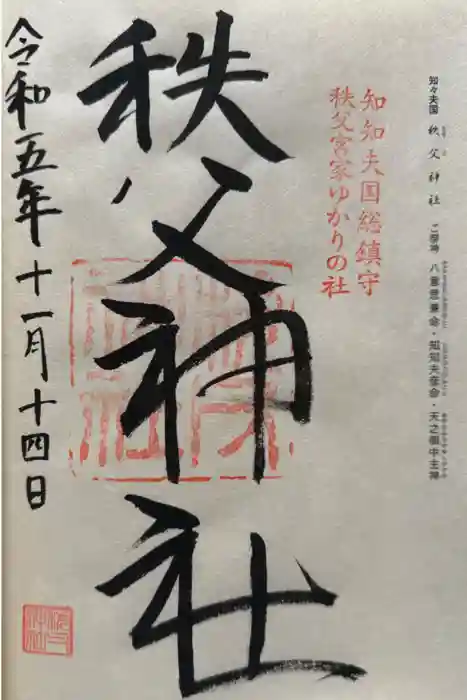 知々夫国 秩父神社 ご祭神 八意思兼命・知知夫彦命・天之御中主神
知知夫国総鎮守
秩父宮家ゆかりの社
秩父神社
令和五年 十一月 十四日